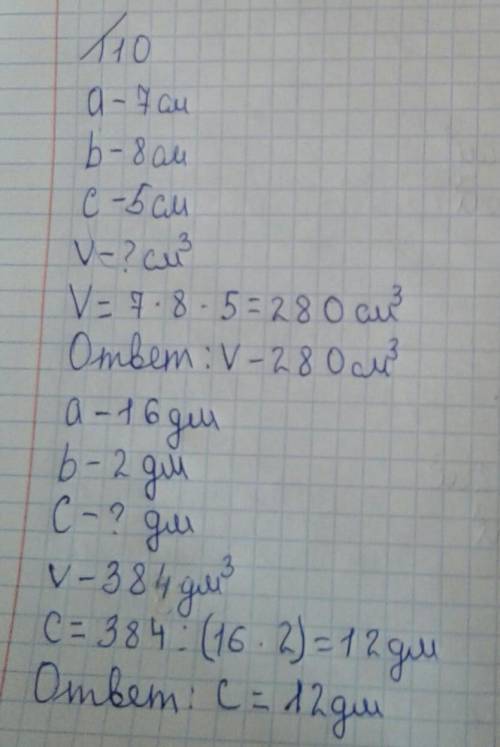 110
a - 7 см
b - 8 см
c - 5 см
V - ? см³
V = 7 · 8 · 5 = 280 см³
Ответ: V - 280 см³
a - 16 дм
b - 2 дм
C - ? дм
V - 384 дм³
C = 384 : (16 · 2) = 12 дм
Ответ: C = 12 дм